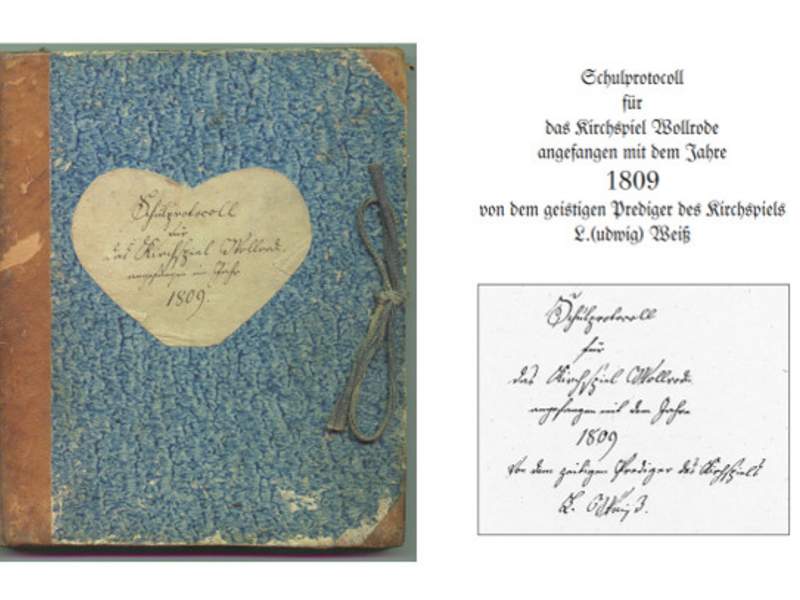 Schulprotocoll
für
das Kirchspiel Wollrode
angefangen im Jahr
1809
Schulprotocoll
für
das Kirchspiel Wollrode
angefangen mit dem Jahre
1809
von dem geistigen Prediger des Kirchspiels
L.(udwig) Weiß
Schulprotocoll
für
das Kirchspiel Wollrode
angefangen mit dem Jahre
1809
von dem zeitigen Prediger des Kirchspiels
L. Weiß.